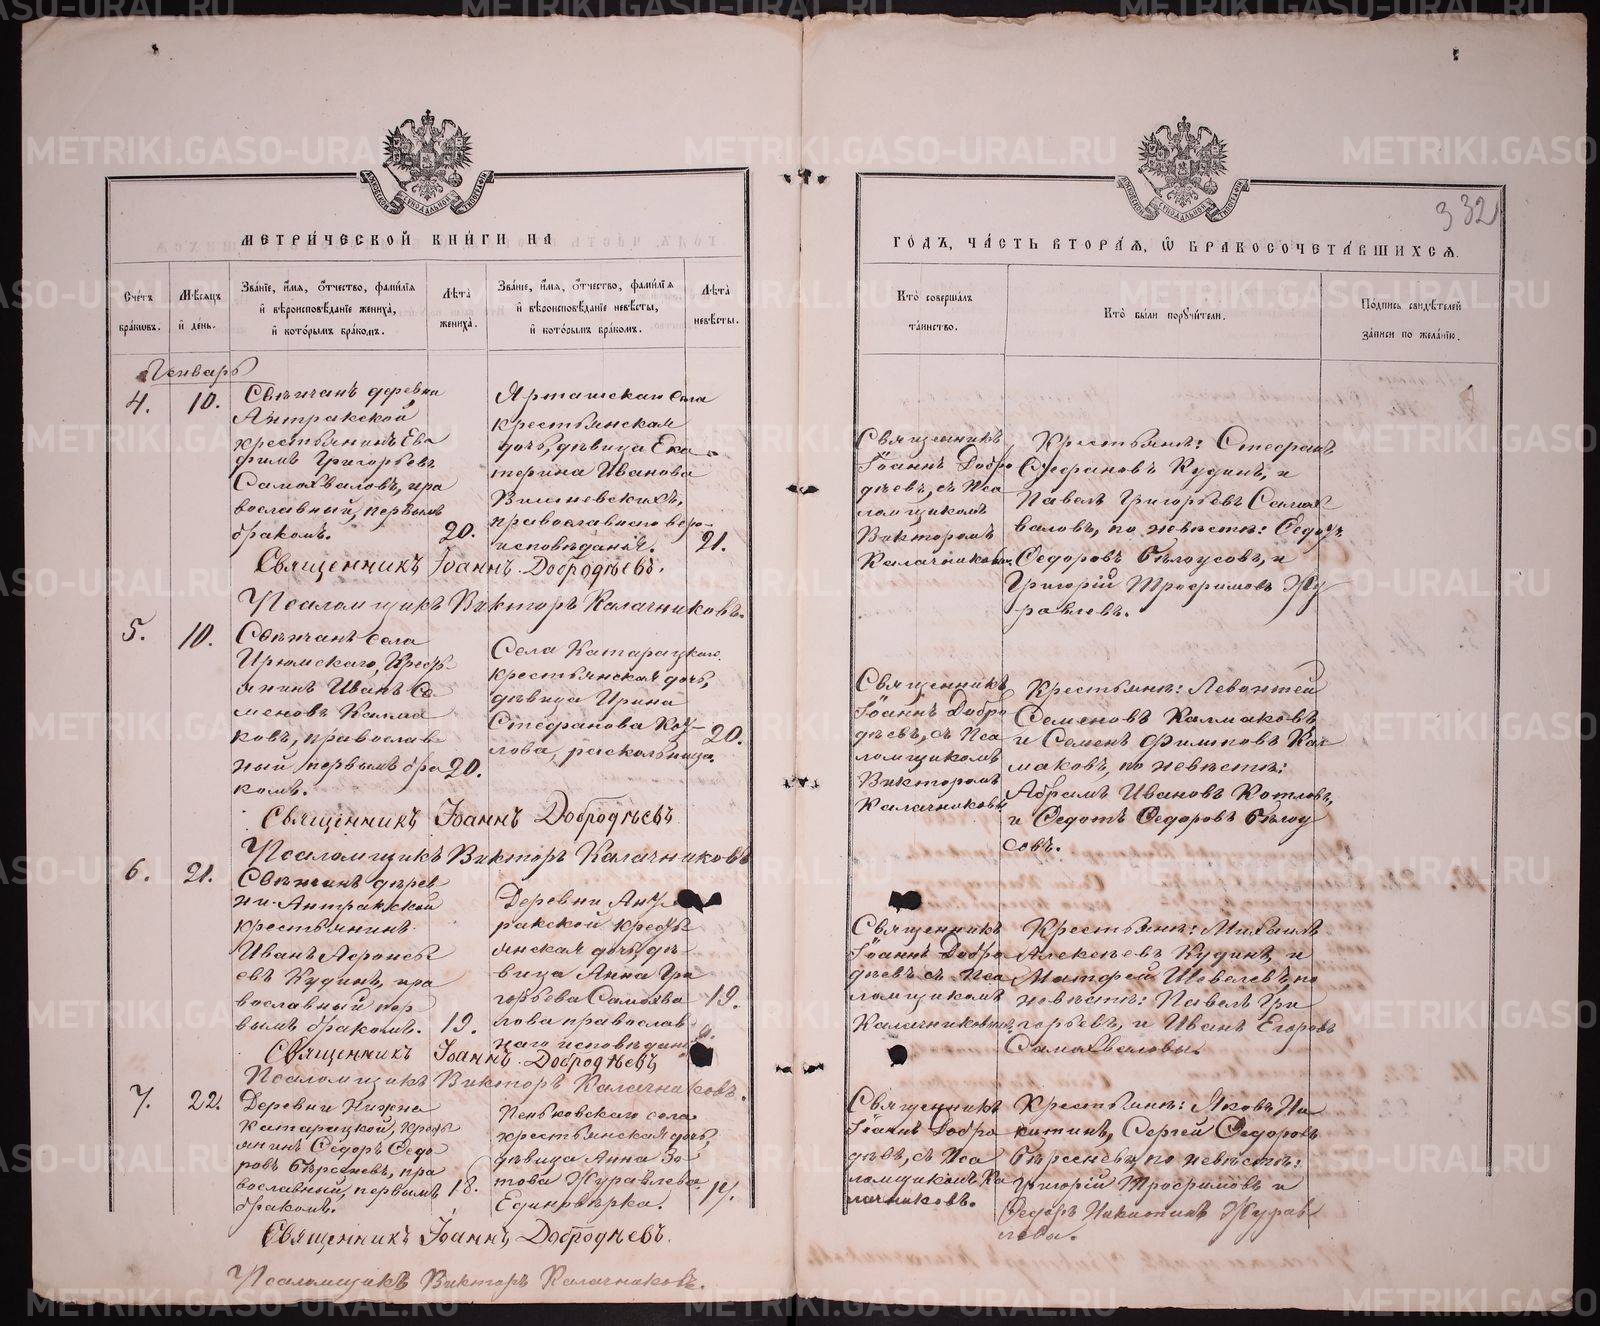 МЕТРИ́ЧЕСКОЙ КНИ́ГИ НА
Сче́тъ бра́ковъ.
Мѣ́сяцъ и҆ де́нь.
Зва́нїе, и҆́мѧ, ѻ҆́тчество, фами́лїѧ
и҆ вѣроисповѣ́данїе жениха̀,
и҆ кото́рымъ бра́комъ.
Лѣта̀ жениха̀.
Зва́нїе, и҆́мѧ, ѻ҆́тчество, фами́лїѧ
и҆ вѣроисповѣ́данїе невѣ́сты,
и҆ кото́рымъ бра́комъ.
Лѣта̀ невѣ́сты.
Генварь
4.
10.
Свѣнчанъ деревни
Антракской
крестьянинъ Ев
фимъ Григорьевъ
Самохваловъ, пра
вославный, первымъ
бракомъ.
20.
Ярташскаго села
крестьянская
дочь, дѣвица Ека
терина Иванова
Вишневскихъ,
православнаго веро-
исповѣданія.
21.
Священникъ Іоаннъ Добродѣевъ.
Псаломщикъ Викторъ Калачниковъ.
5.
10.
Свѣнчанъ села
Ирюмскаго, Кресть
янинъ Иванъ Се
меновъ Калма
ковъ, православ
ный первымъ бра
комъ.
20.
Села Катарацкаго
крестьянская дочь,
дѣвица Ирина
Стефанова Коу-
лова, раскольница.
20.
Священникъ Іоаннъ Добродѣевъ
Псаломщикъ Викторъ Калачниковъ
6.
21.
Свѣнчанъ дерев
ни Антракской
крестьянинъ
Иванъ Афонась
евъ Кудинъ, пра
вославный пер
вымъ бракомъ.
19.
Деревни Ант
ракской кресть
янская дочь, дѣ
вица Анна Гри
горьева Самохва
лова православ
наго исповѣдан
19.
Священникъ Іоаннъ Добродѣевъ
Псаломщикъ Викторъ Калачниковъ.
7.
22.
Деревни Нижне
Катарацкой, кресть
янинъ Ѳедоръ Ѳедо
ровъ Берсеневъ, пра
вославный, первымъ
бракомъ.
18.
Пеньковскаго села
крестьянская дочь,
дѣвица Анна Зо
това Журавлева.
Единовѣрка.
17.
Священникъ Іоаннъ Добродѣевъ.
Псаломщикъ Викторъ Калачниковъ.
332
ГО́ДЪ, ЧА́СТЬ ВТОРА́Ѧ, Ѽ БРАКОСОЧЕТА́ВШИХСѦ.
Кто̀ соверша́лъ та́инство.
Кто̀ бы́ли порꙋчи́тели.
По́дпись свидѣ́телей за́писи по жела́нїю.
Священникъ
Іоаннъ Добро
дѣевъ, съ Пса
ломщикомъ
Викторомъ
Калачниковы.
Крестьяне: Стефанъ
Стефановъ Кудинъ, и
Павелъ Григорьевъ Самох
валовъ, по невѣсте: Ѳедоръ
Ѳедоровъ Белоусовъ, и
Григорій Трофимовъ Жу
равлевъ.
Священникъ
Іоаннъ Добро
дѣевъ, съ Пса
ломщикомъ
Викторомъ
Калачниковы
Крестьяне: Левонтей
Семеновъ Калмаковъ
и Семенъ Филиповъ Кал
маковъ, по невѣсте:
Абрамъ Ивановъ Котловъ,
и Ѳедотъ Ѳедоровъ Белоу
совъ.
Священникъ
Іоаннъ Добро
дѣевъ съ Пса
ломщикомъ
Калачниковымъ
Крестьяне: Михаилъ
Алексѣевъ Кудинъ, и
Матфей Шевелевъ, по
невѣсте: Павелъ Гри
горьевъ, и Иванъ Егоровъ
Самохваловы.
Священникъ
Іоаннъ Добро
дѣевъ, съ Пса
ломщикомъ Ка
лачниковъ.
Крестьяне: Яковъ Ни
китинъ, Сергей Ѳедоровъ
Берсеневы, по невѣсте:
Григорій Трофимовъ и
Ѳедоръ Никитинъ Журав
левы.
METRIKI.GASO-URAL.RU